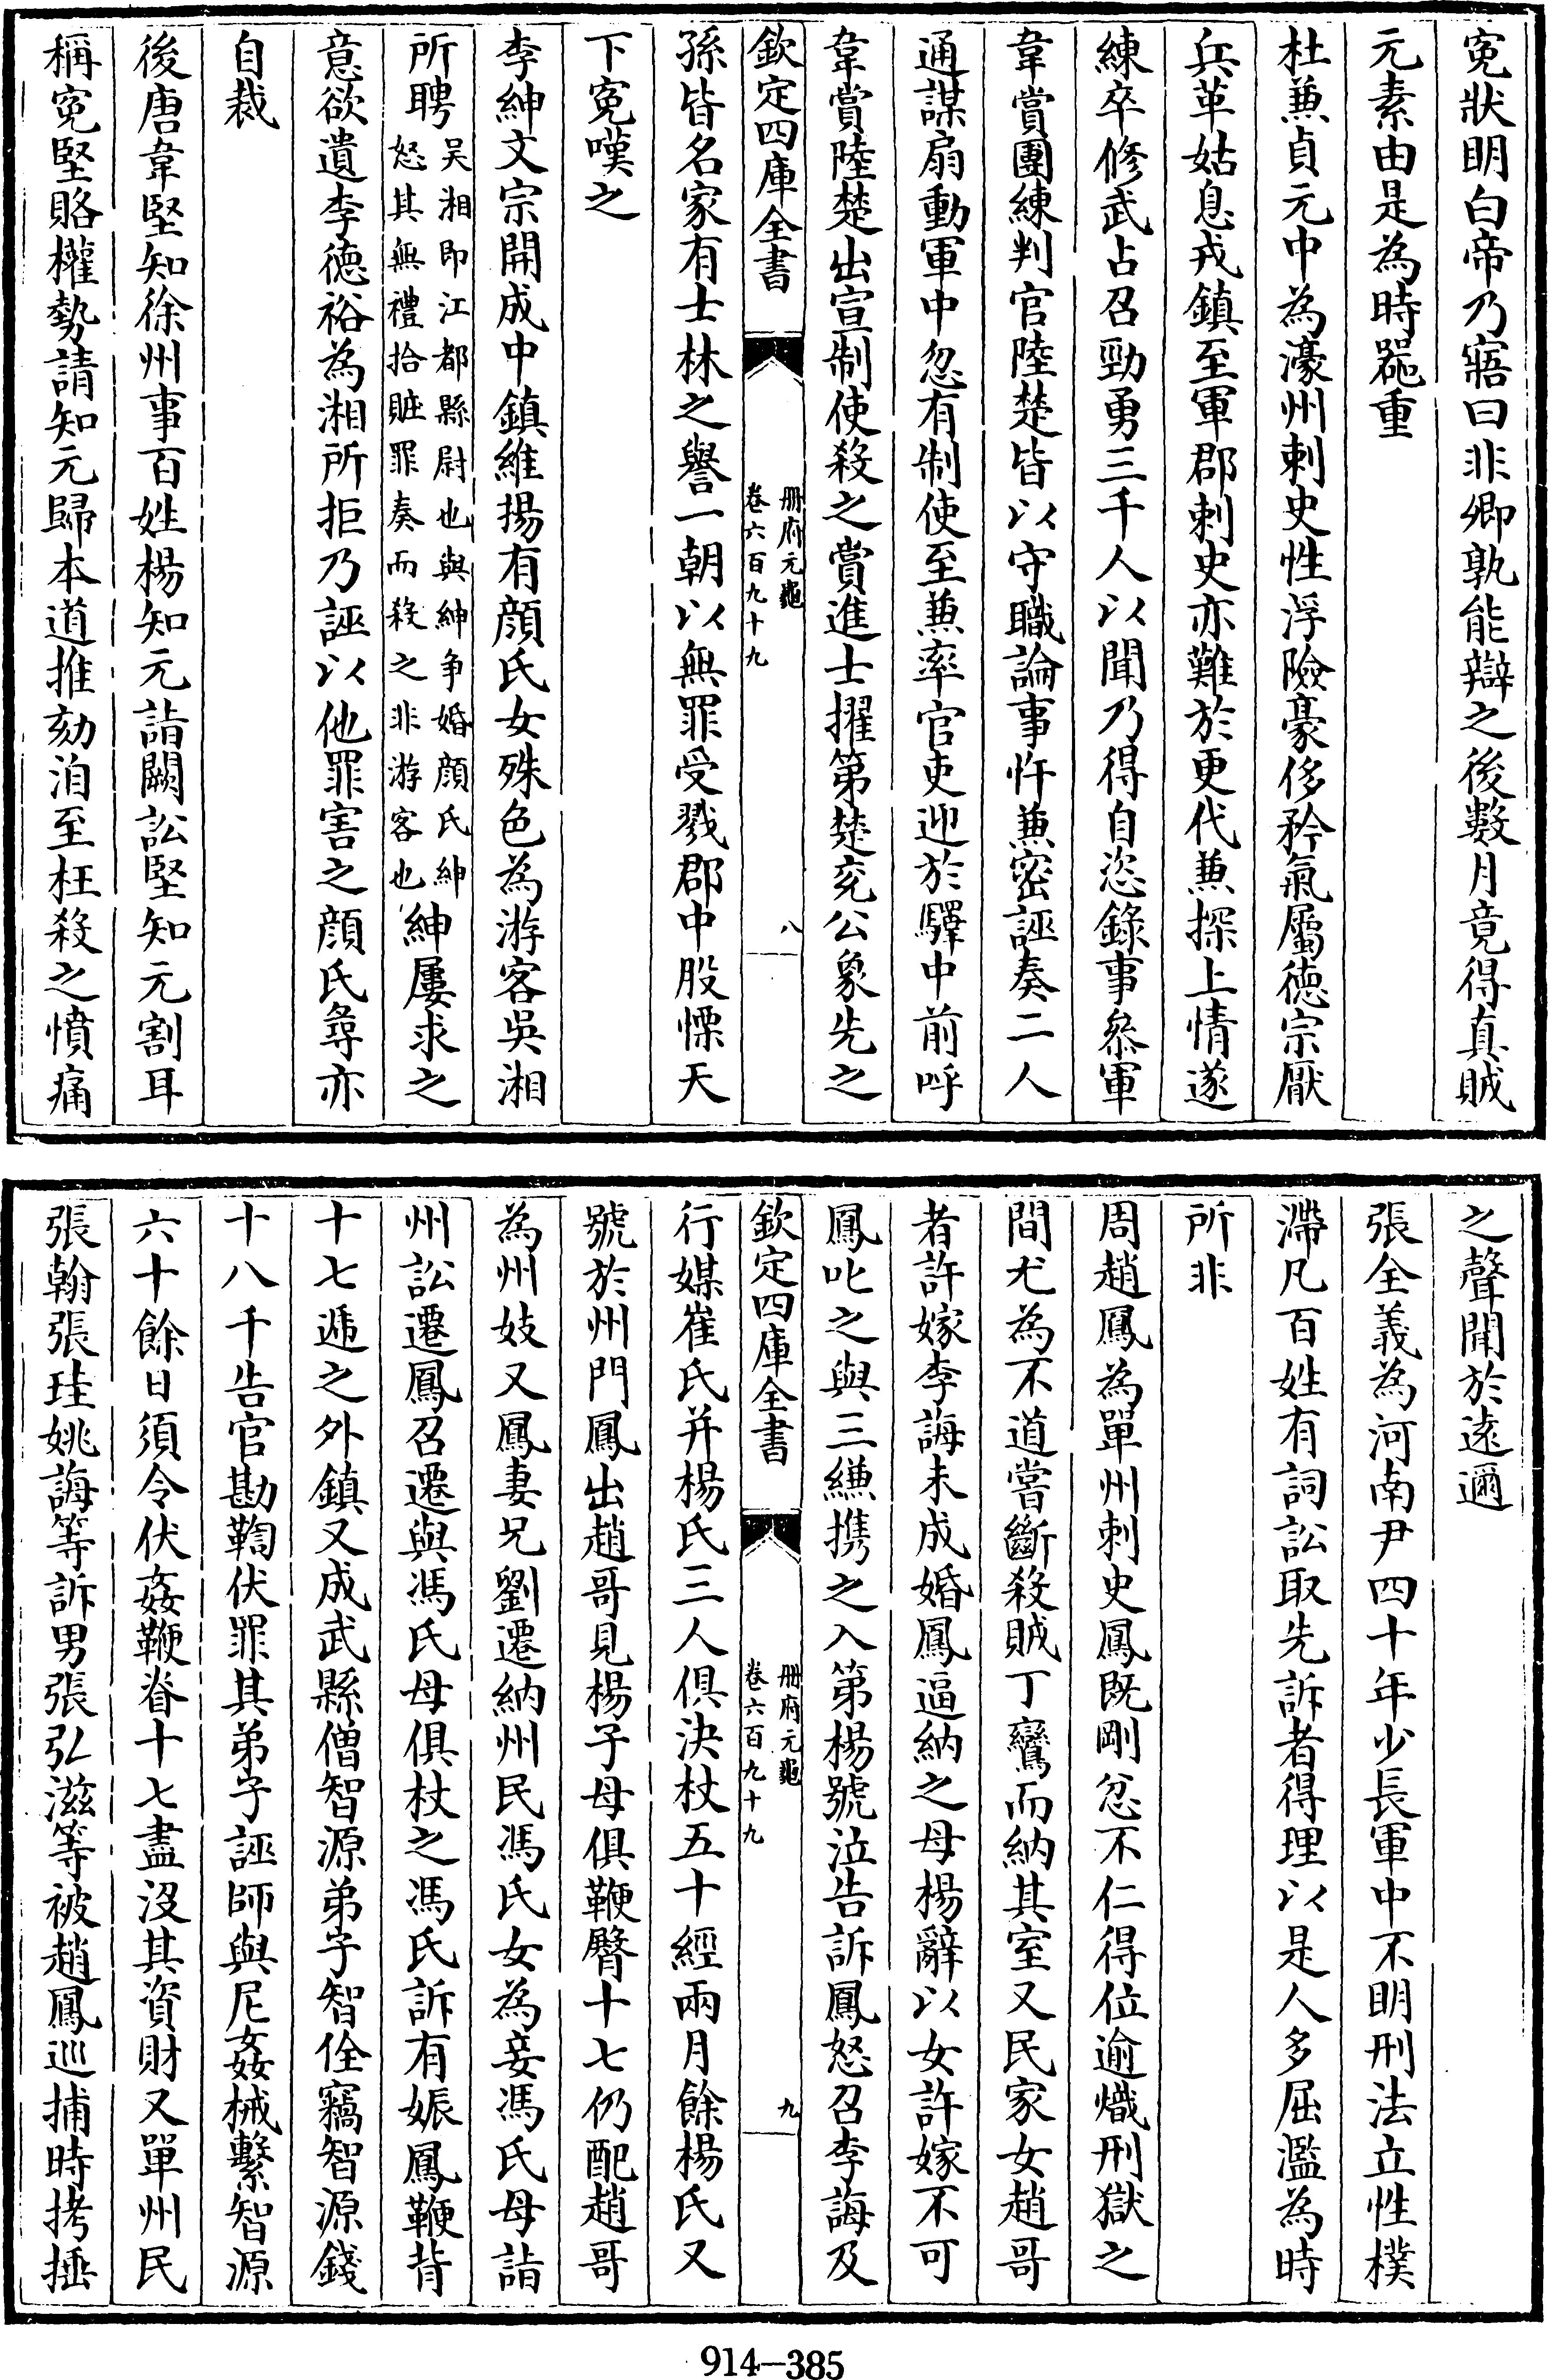 寃狀明白帝乃寤曰非卿孰能辯之後數月竟得真賊
元素由是為時噐重
杜兼貞元中為濠州刺史性浮險豪侈矜氣屬徳宗厭
兵革姑息戎鎮至軍郡刺史亦難於更代兼探上情遂
練卒修武占召勁勇三千人以聞乃得自恣錄事叅軍
韋賞團練判官陸楚皆以守職論事忤兼密誣奏二人
通謀扇動軍中忽有制使至兼率官吏迎於驛中前呼
韋賞陸楚出宣制使殺之賞進士擢第楚兖公象先之
欽定四庫全書
冊府元龜
卷六百九十九
八
孫皆名家有士林之譽一朝以無罪受戮郡中股慄天
下寃嘆之
李紳文宗開成中鎮維揚有顔氏女殊色為游客吳湘
所聘吳湘即江都縣尉也與紳争婚顔氏紳
怒其無禮拾賍罪奏而殺之非游客也紳屢求之
意欲遺李徳裕為湘所拒乃誣以他罪害之顔氏尋亦
自裁
後唐韋堅知徐州事百姓楊知元詣闕訟堅知元割耳
稱寃堅賂權勢請知元歸本道推劾洎至枉殺之憤痛
之聲聞於逺邇
張全義為河南尹四十年少長軍中不明刑法立性樸
滯凡百姓有詞訟取先訴者得理以是人多屈濫為時
所非
周趙鳳為單州刺史鳳既剛忍不仁得位逾熾刑獄之
間尤為不道嘗斷殺賊丁鸞而納其室又民家女趙哥
者許嫁李誨未成婚鳳逼納之母楊辭以女許嫁不可
鳳叱之與三縑携之入第楊號泣告訴鳳怒召李誨及
欽定四庫全書
冊府元龜
卷六百九十九
九
行媒崔氏并楊氏三人俱決杖五十經兩月餘楊氏又
號於州門鳳出趙哥見楊子母俱鞭臀十七仍配趙哥
為州妓又鳳妻兄劉遷納州民馮氏女為妾馮氏母詣
州訟遷鳳召遷與馮氏母俱杖之馮氏訴有娠鳳鞭背
十七遞之外鎮又成武縣僧智源弟子智佺竊智源錢
十八千告官勘鞫伏罪其弟子誣師與尼姦械繫智源
六十餘日須令伏姦鞭脊十七盡沒其資財又單州民
張翰張珪姚誨等訴男張弘滋等被趙鳳巡捕時拷捶
914-385